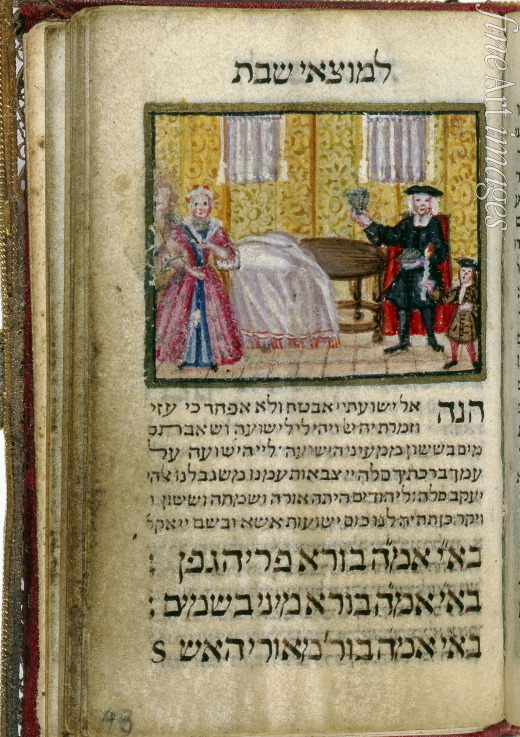 למוצאי שבת
הנה אל ישועתי אבטח ולא אפחד כי עזי
וזמרת יה ה׳ ויהי לי לישועה ושאבתם
מים בששון ממעיני הישועה: ליי הישועה על
עמך ברכתיך סלה יי צבאות עמנו משגב לנו אלהי
יעקב סלה: ליהודים היתה אורה ושמחה וששון ו
ויקר כן תהיה לנו כוס ישועות אשא ובשם יי אקר
באי׳ אמ״ה בורא פרי הגפן :
באי׳ אמ״ה בורא מיני בשמים :
באי׳ אמ״ה בור׳ מאורי האש
43
fine art images